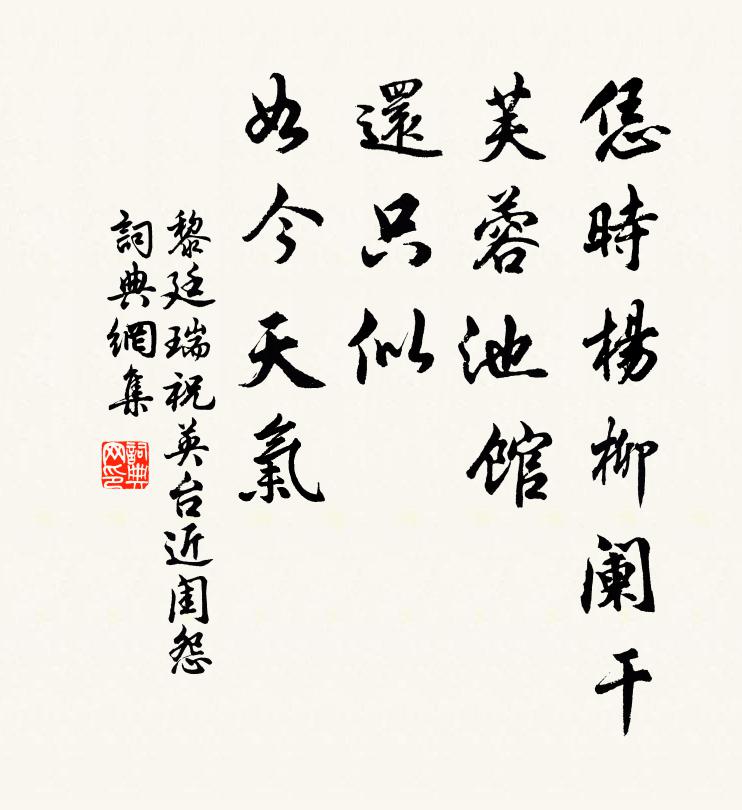 恁時楊柳闌干
芙蓉池館
還只似
如今天氣
黎廷瑞祝英台近閨怨
詞典網集
詞典網印